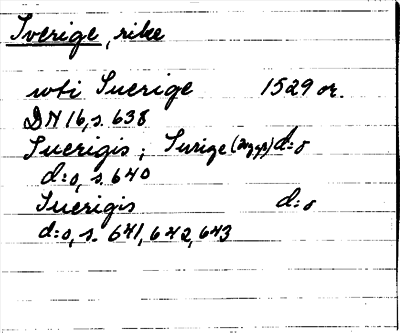 Sverige, rike
wti Suerige 1529 or.
DN 16, s. 638
Suerigis; Surige d:o
d:o, s. 640
Suerigis d:o
d:o, s. 641, 642, 643